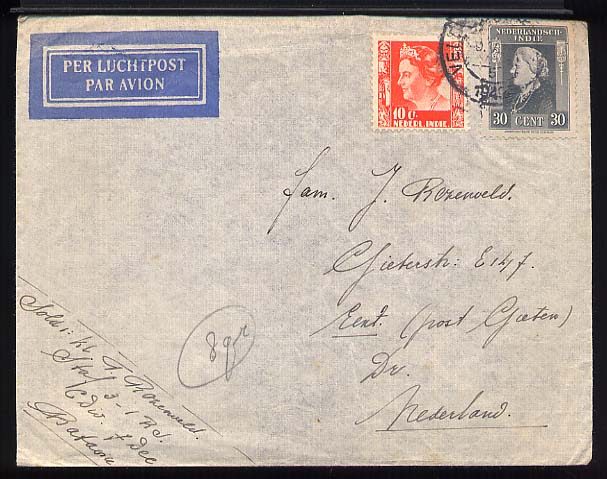 PER LUCHTPOST
PAR AVION
10 c.
NEDERL. INDIE
NEDERLANDSCH-
INDIE
30 CENT 30
fam. J. Rozenveld.
Gieterstr: E 147.
Eext. (post Gieten)
Dr.
Nederland.
8 gr
Rozenveld.
Staf 3-1 R.I.
Batavia